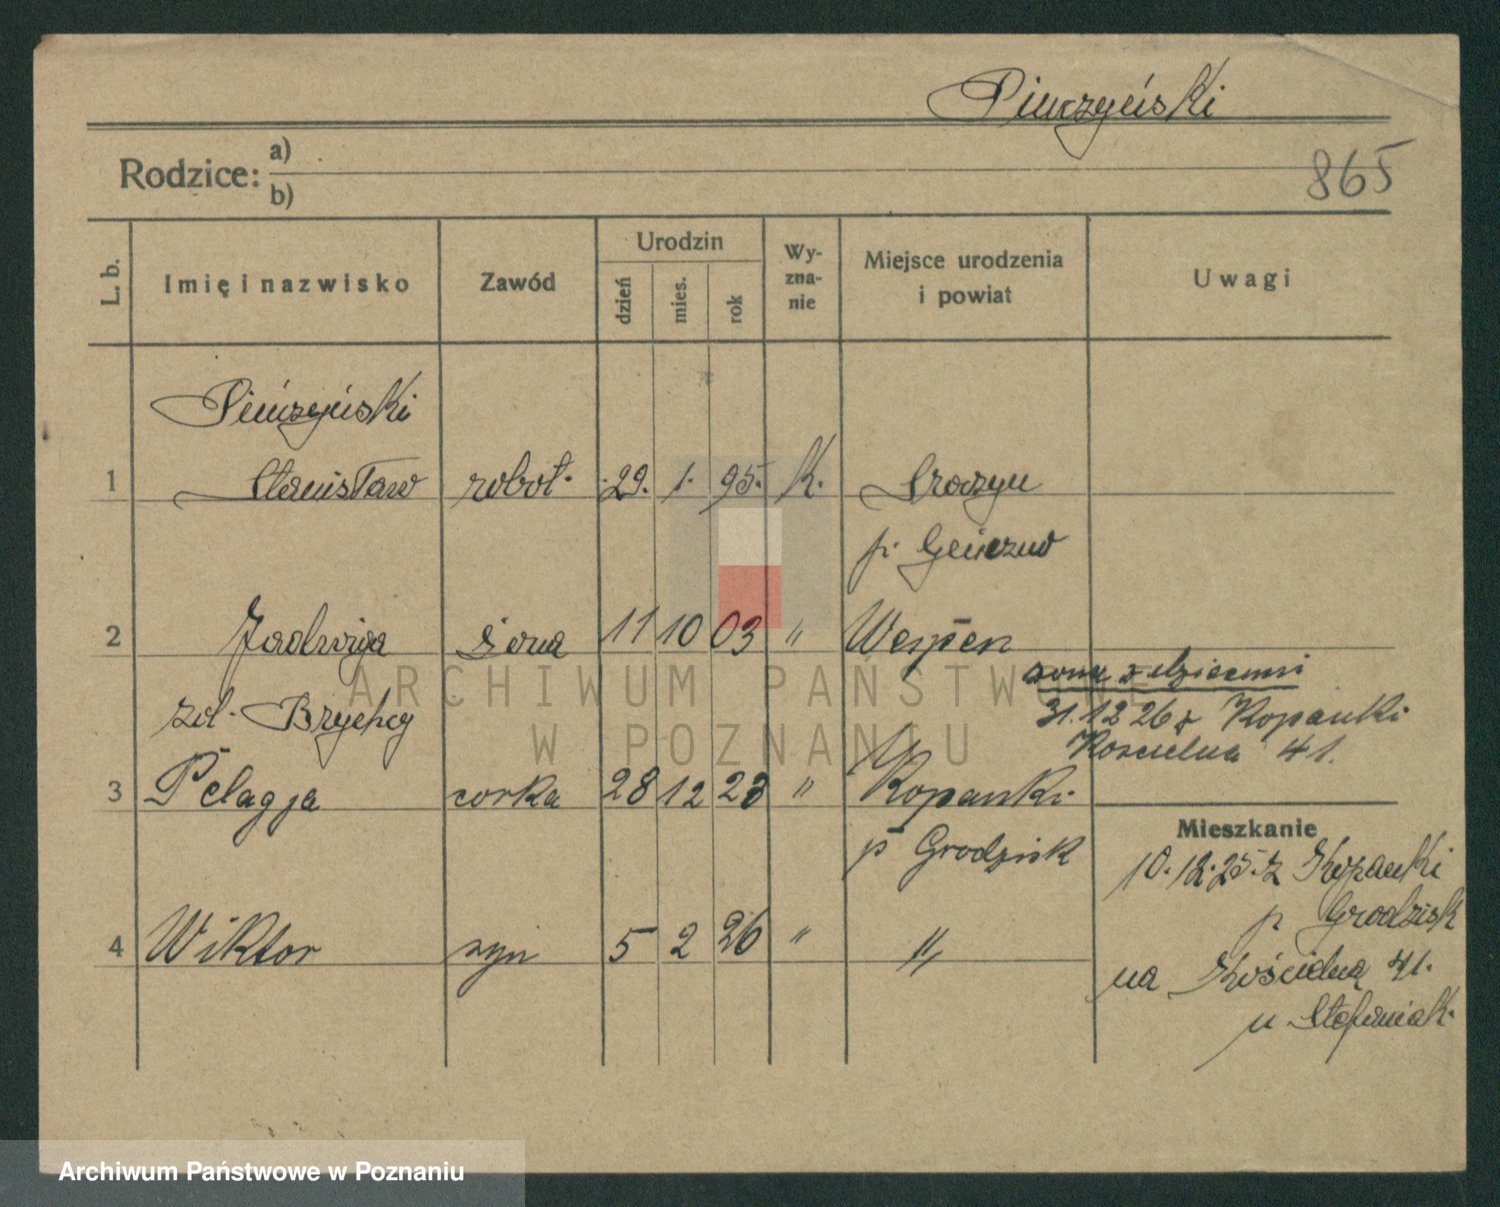 Pinczyński
865
Rodzice:
a)
b)
L. b.
Imię i nazwisko
Zawód
Urodzin
dzień
mies.
rok
Wy-
zna-
nie
Miejsce urodzenia
i powiat
Uwagi
Pińczyński
1 Stanisław robot. 29. 1. 95. K.
p.
2 Jadwiga żona 11 10 03 "
żona z dziećmi
zd. Brychcy
31.12 26 z Kopanki
Kościelna 41.
3 Pelagja corka 28 12 23 " Kopanki
p Grodzisk
Mieszkanie
10.12.25. z Kopanki
p Grodzisk
4 Wiktor syn 5 2 26 " "
na Kościelną 41.
u Stefaniak.
ARCHIWUM PAŃSTWOWE
W POZNANIU
Archiwum Państwowe w Poznaniu